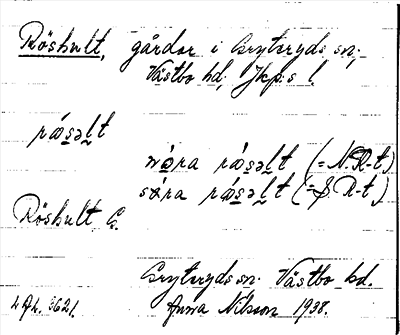 Röshult, gårdar i Gryteryds sn;
Västbo hd; Jkp:s l.
rǿsəlt
nøra rǿsəlt (=N. R-t)
søra rǿsəlt (=S. R-t)
Röshult G.
Gryteryds sn Västbo hd.
Anna Nilsson 1938.